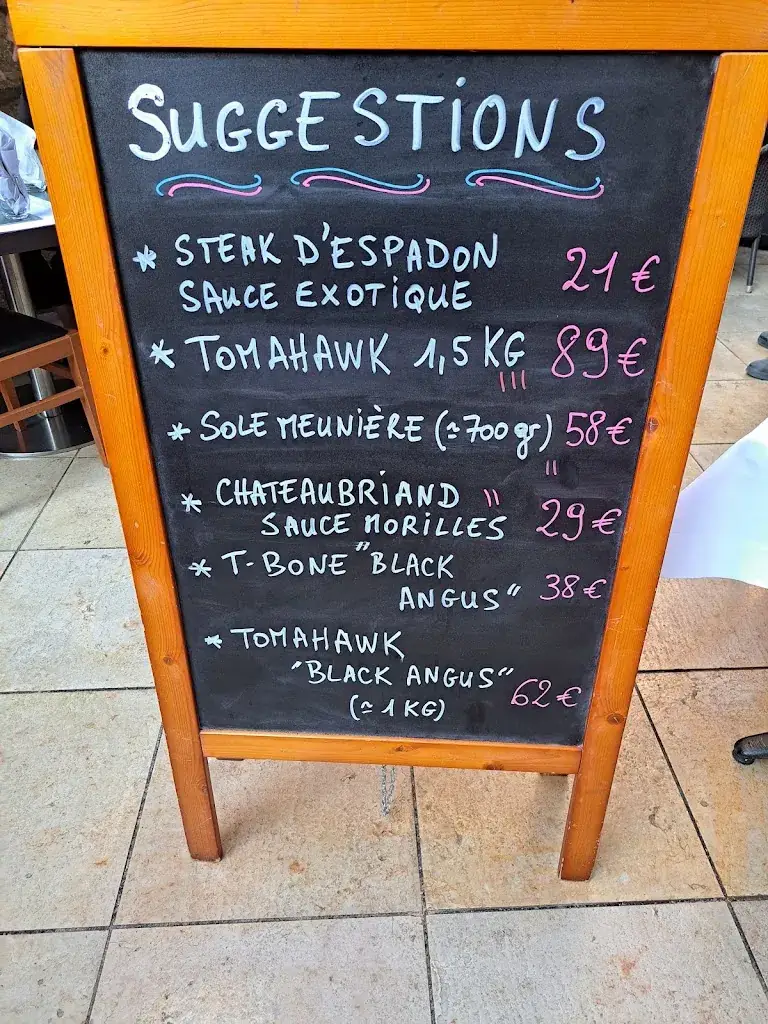 SUGGESTIONS
* STEAK D'ESPADON 21 €
SAUCE EXOTIQUE
* TOMAHAWK 1,5 KG 89 €
* SOLE MEUNIÈRE (≃ 700 gr) 58 €
* CHATEAUBRIAND
SAUCE MORILLES 29 €
* T-BONE "BLACK
ANGUS" 38 €
* TOMAHAWK
"BLACK ANGUS"
(≃ 1 KG) 62 €